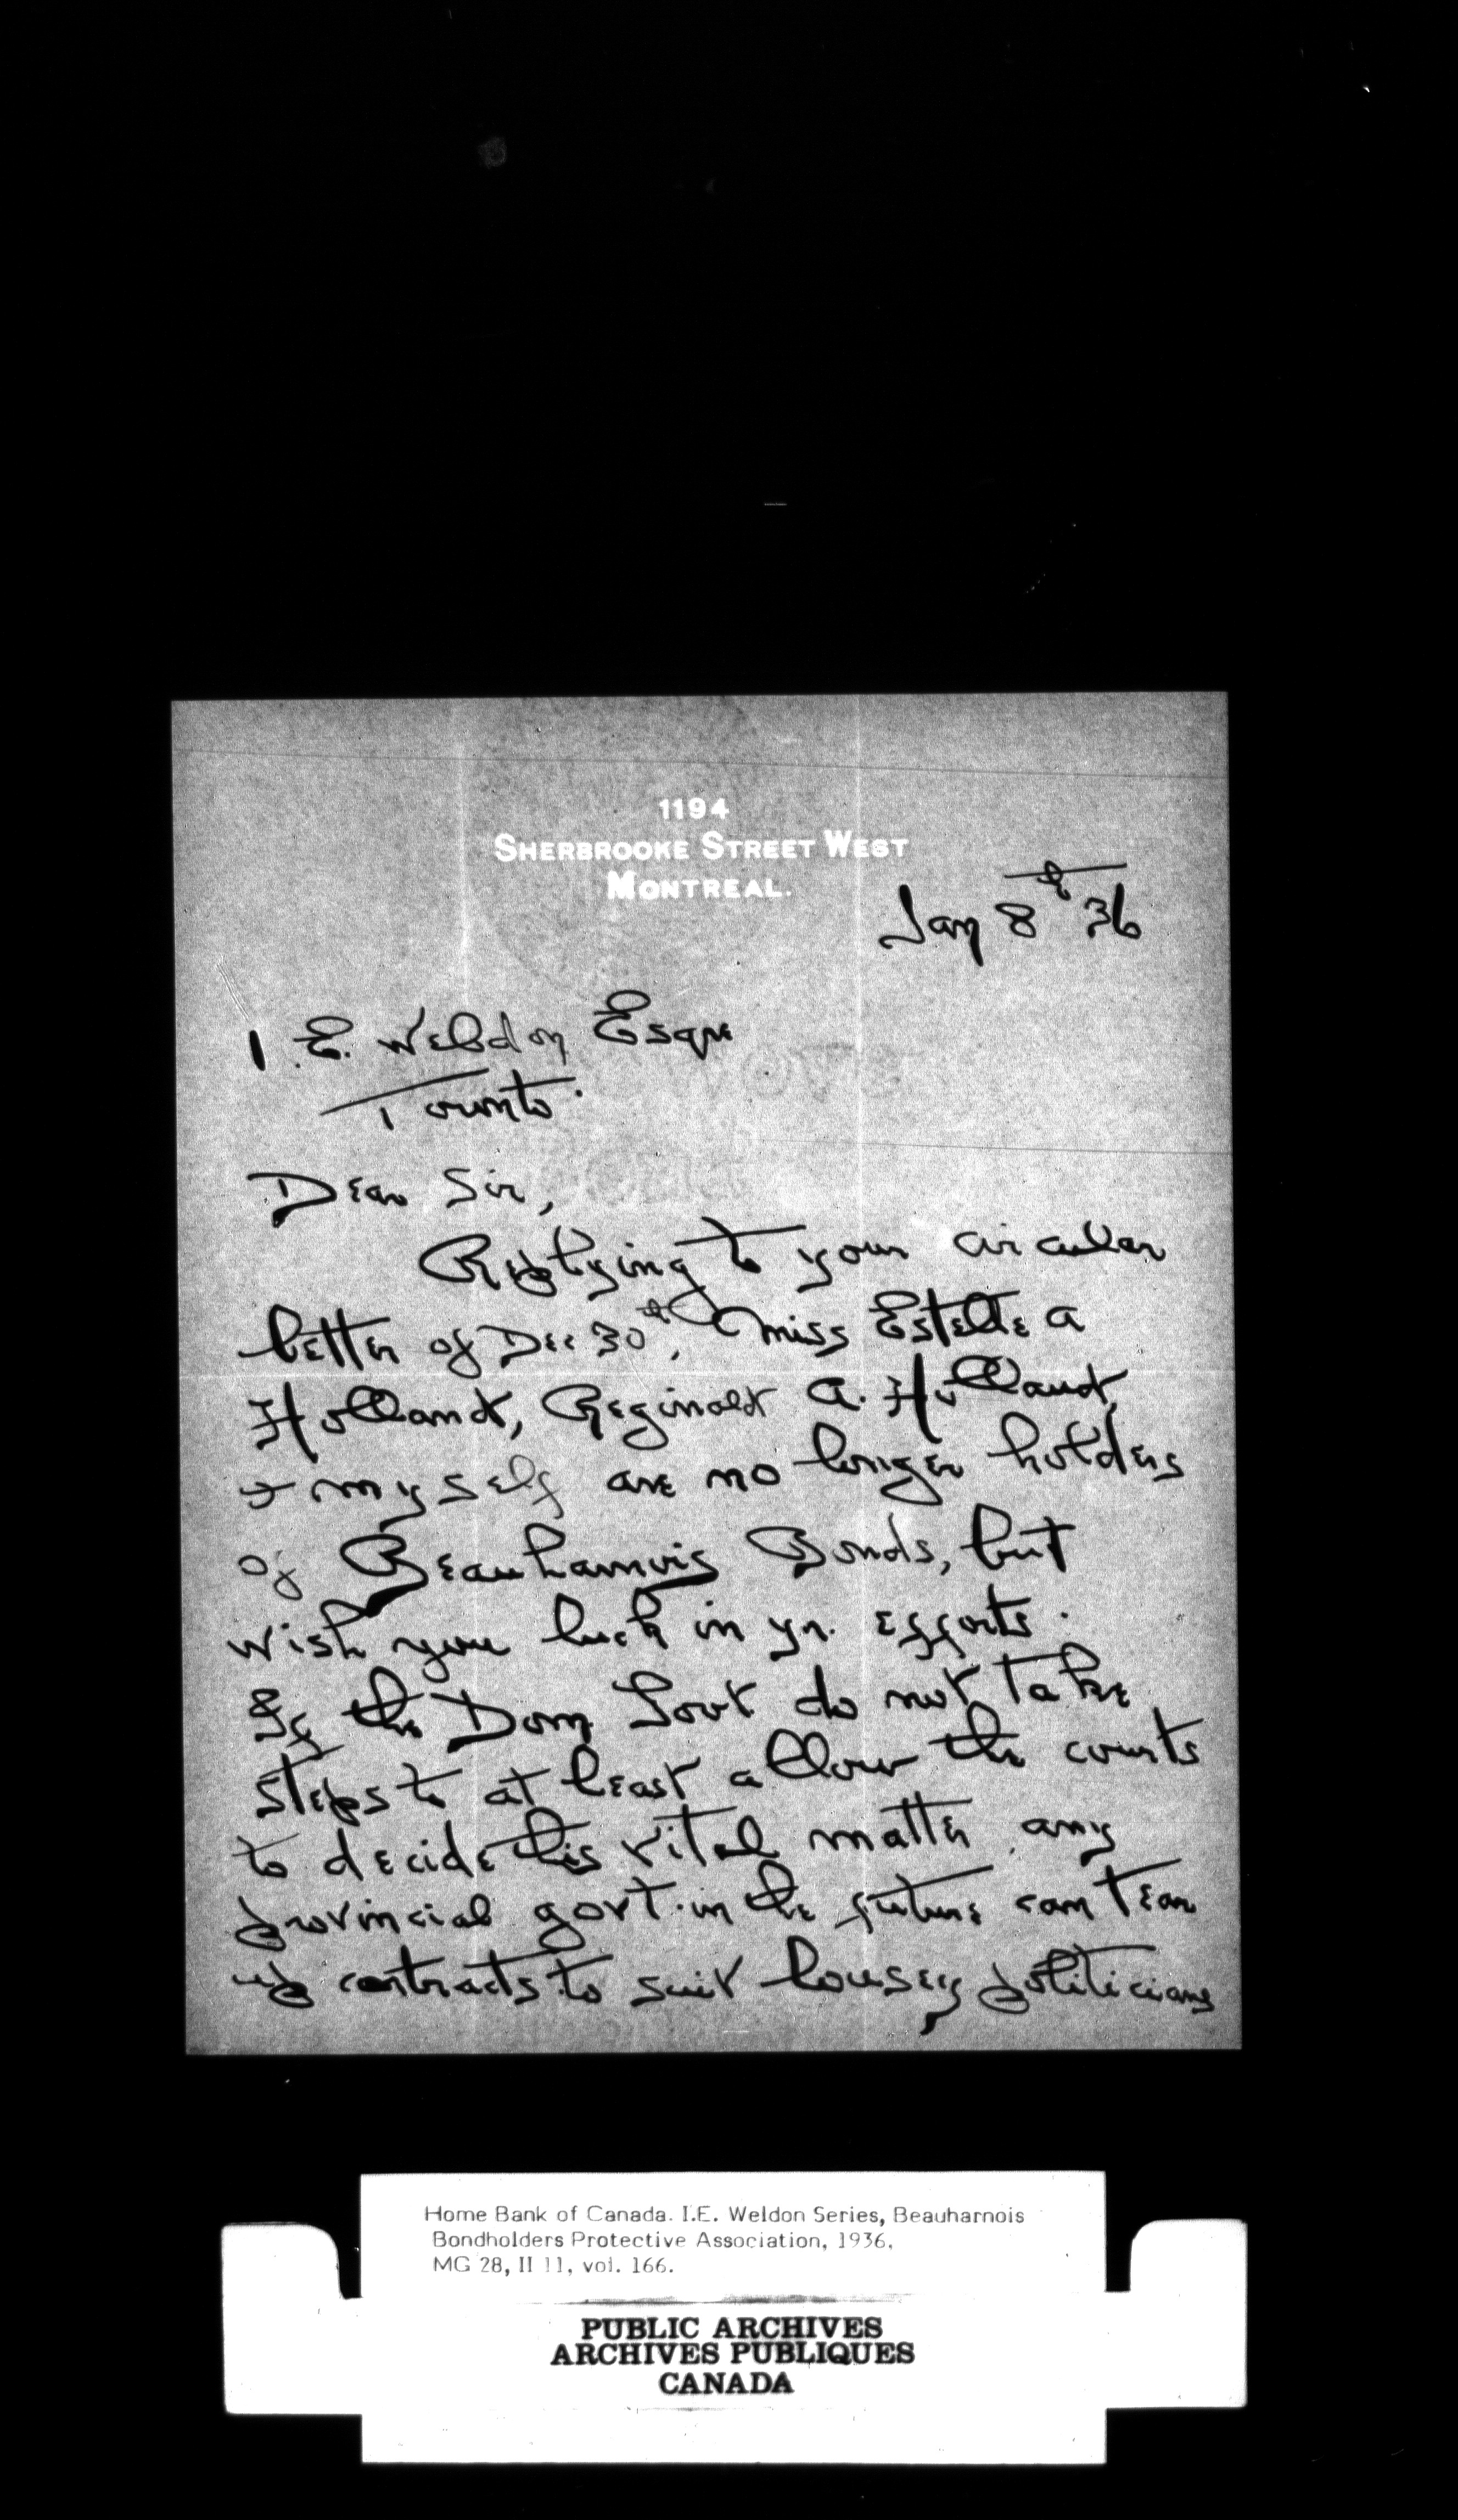 1194
SHERBROOKE STREET WEST
MONTREAL.
Jany 8th 36
I. E. Weldon Esqre
Toronto.
Dear Sir,
Replying to your circular
letter of Dec 30th, Miss Estelle A
Holland, Reginald A. Holland,
+ myself are no longer holders
of Beauharnois Bonds, but
wish you luck in yr. efforts.
If the Dom Govt do not take
steps to at least allow the courts
to decide this vital matter, any
provincial govt. in the future can tear
up contracts to suit lousey politicians
Home Bank of Canada. I.E. Weldon Series, Beauharnois
Bondholders Protective Association, 1936,
MG 28, II 11, vol. 166.
PUBLIC ARCHIVES
ARCHIVES PUBLIQUES
CANADA